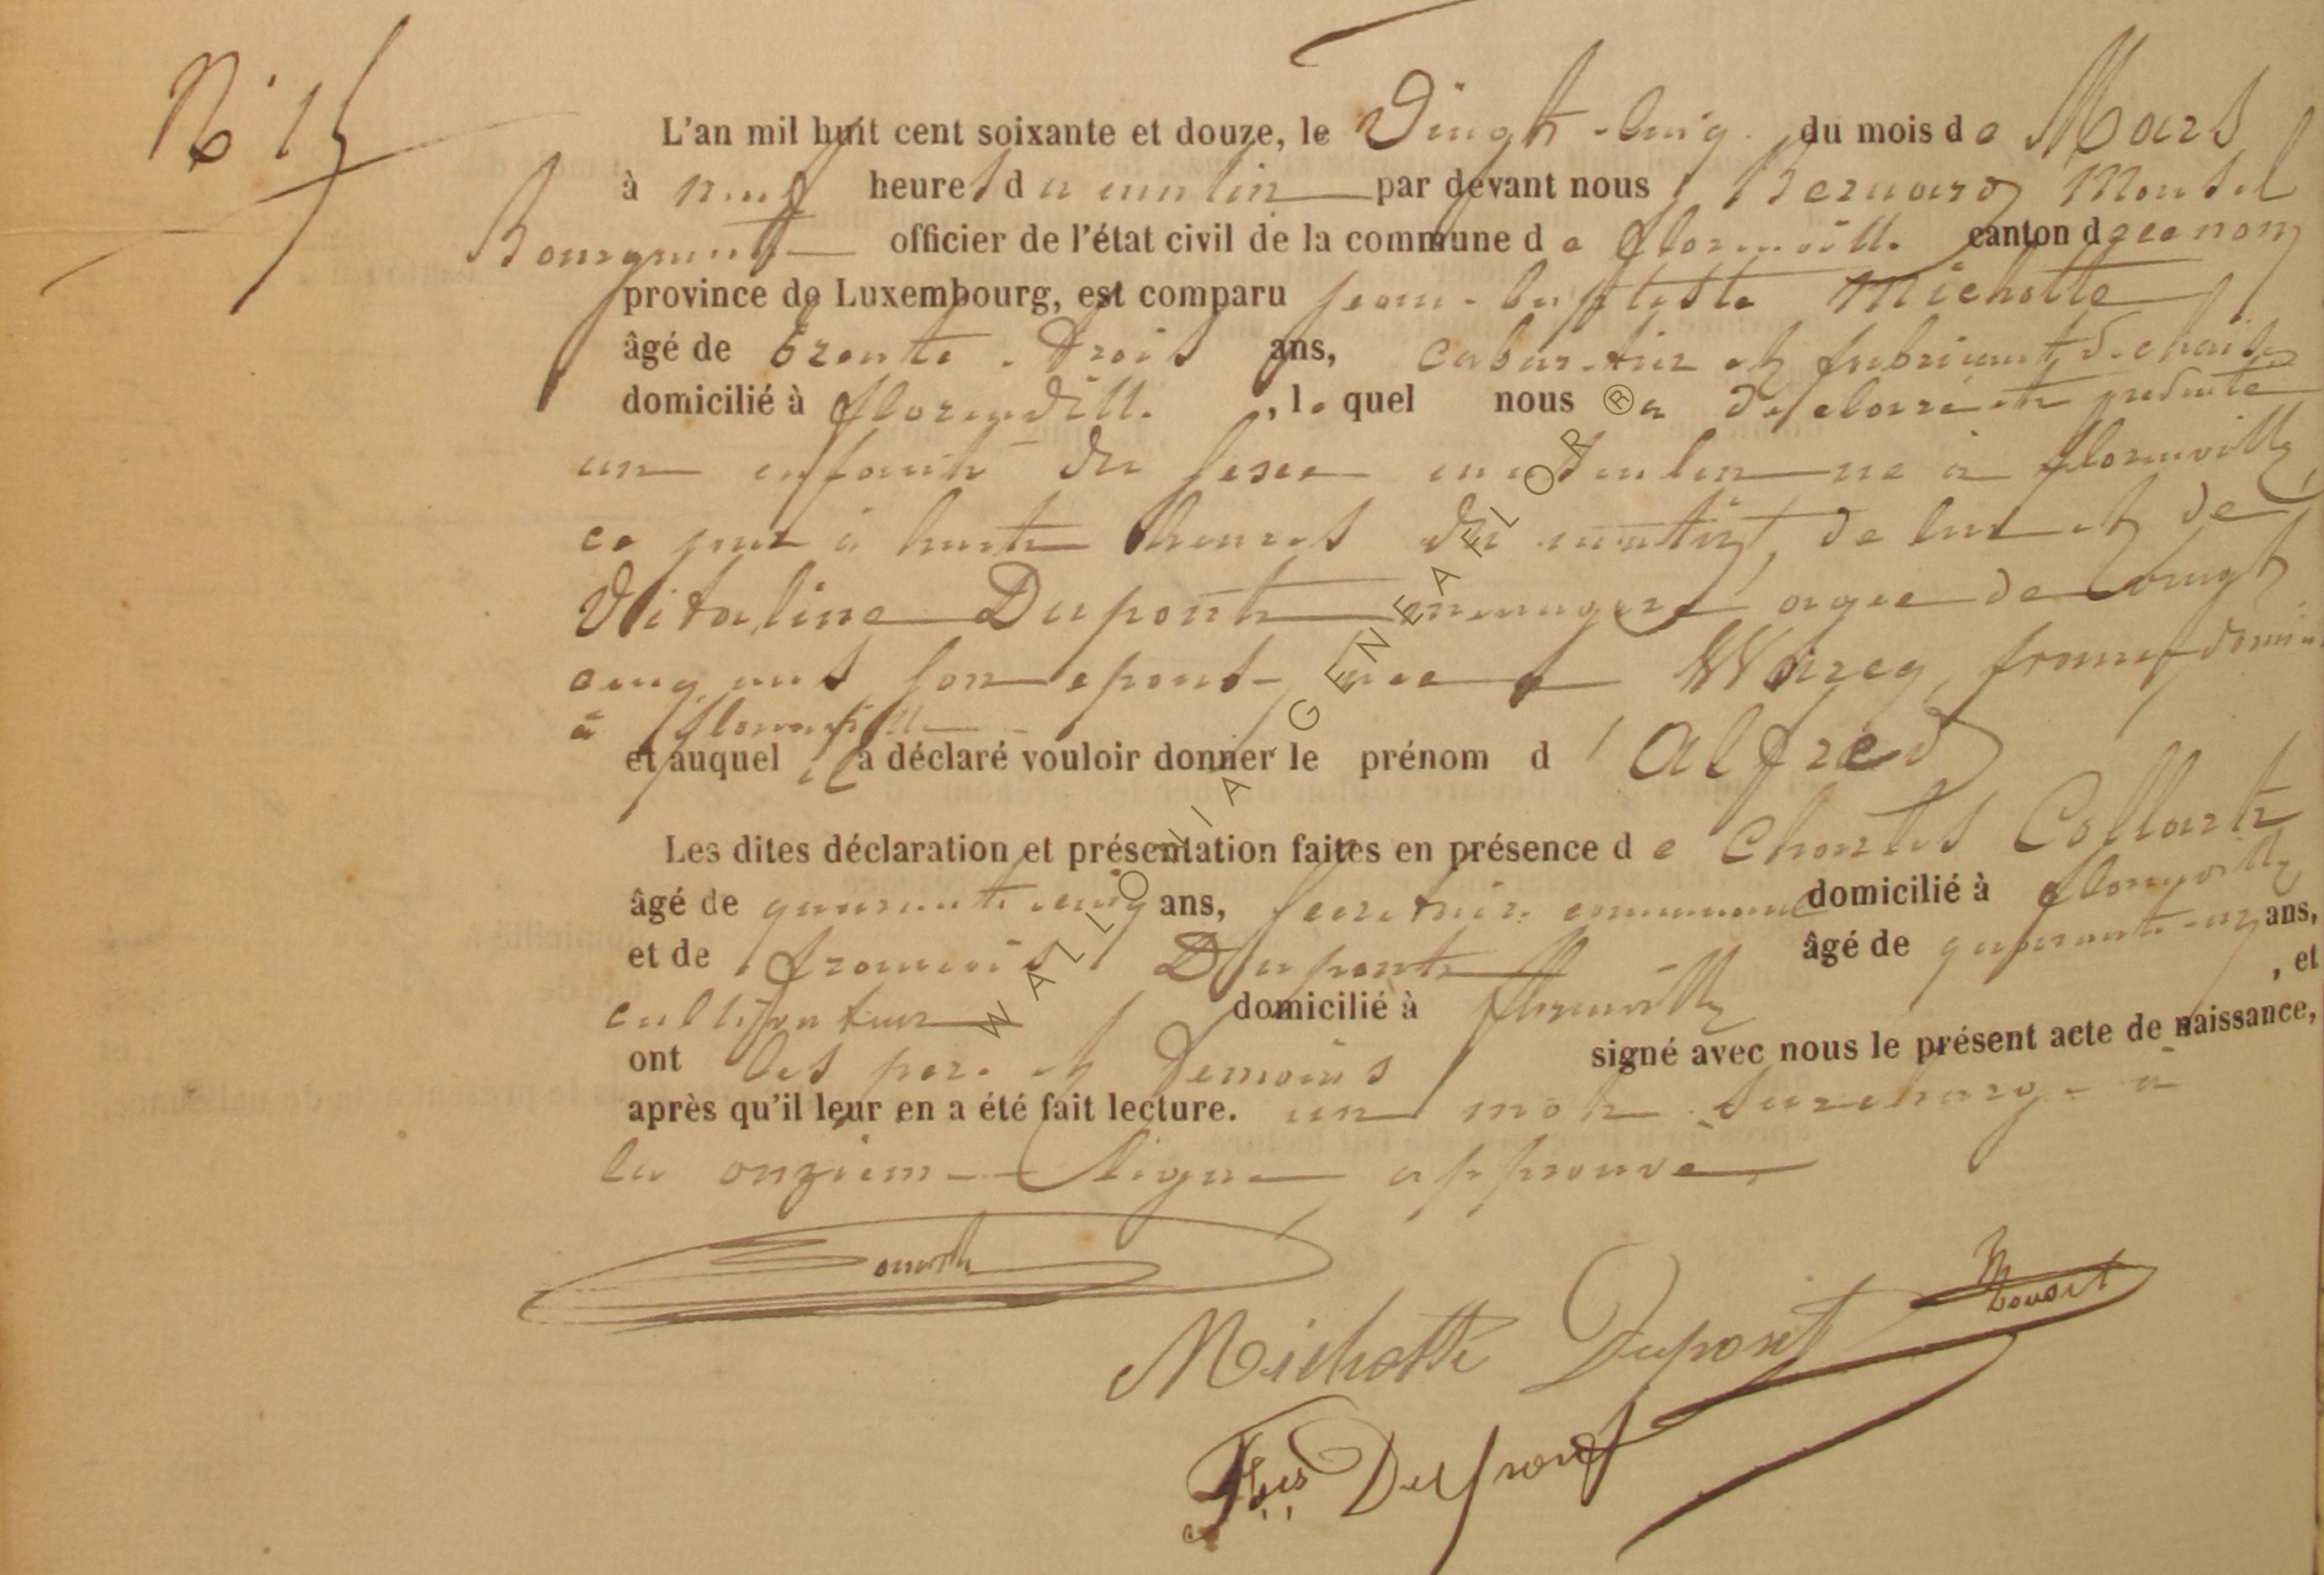 N° 15
L'an mil huit cent soixante et douze, le Vingt-cinq du mois de Mars
à neuf heures du matin par devant nous Bernard Monsel
Bourgmestre officier de l'état civil de la commune de florenville canton d
province de Luxembourg, est comparu jean-baptiste Michotte
âgé de trente-trois ans, cabaretier et fabricant de chaises
domicilié à florenville, lequel nous a déclaré et présenté
un enfant du sexe masculin né à florenville,
ce jour à huit heures du matin, de lui et de
Vitaline Dupont menagere agée de vingt
cinq ans son epouse née a Wireq france domi
à florenville
et auquel il a déclaré vouloir donner le prénom d'Alfred
Les dites déclaration et présentation faites en présence de Charles Collart
âgé de quarante cinq ans, secretaire communal domicilié à florenville
et de françois Dupont âgé de quarante-un ans,
cultivateur domicilié à florenville, et
ont les pere et temoins signé avec nous le présent acte de naissance,
après qu'il leur en a été fait lecture. un mot surchargé à
la onzieme ligne approuvé
Michotte Dupont
Fçois Dupont
WALLONIA GENEAFLOR ®